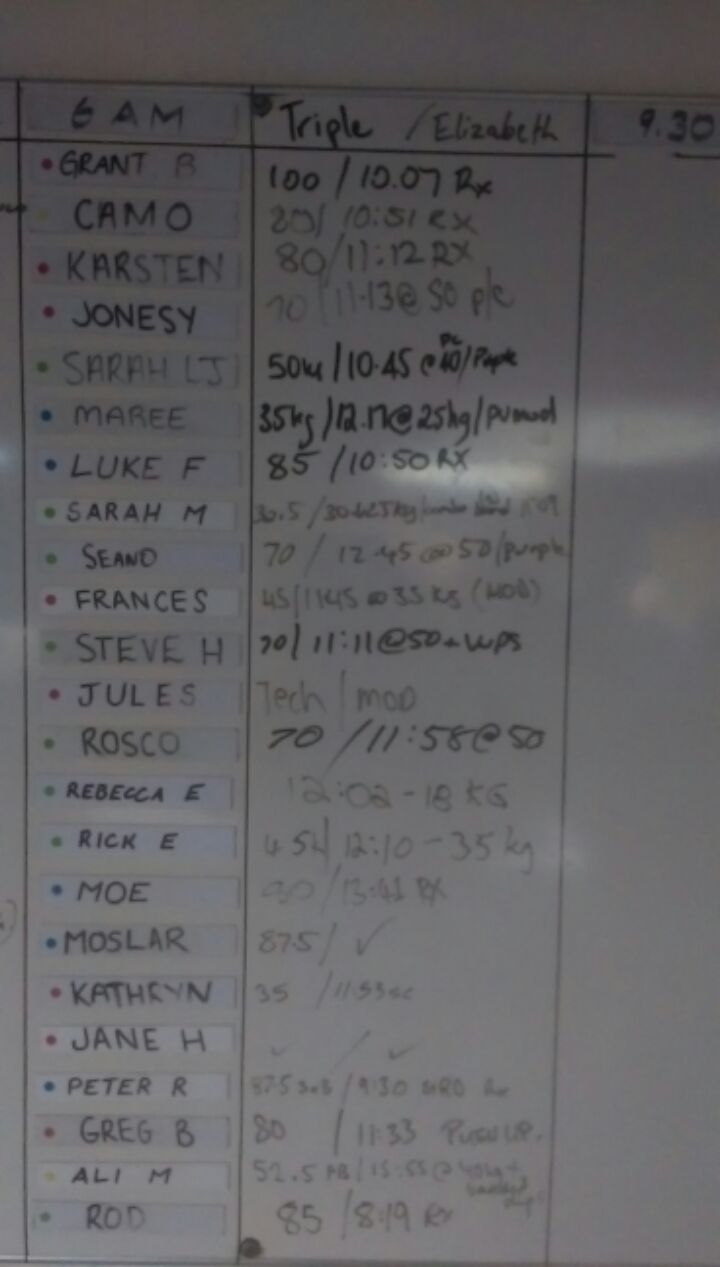 6 AM Triple / Elizabeth 9.30
GRANT B 100 / 10.07 Rx
CAMO 80/ 10:51 RX
KARSTEN 80/11:12 RX
JONESY 70 /11.13@ 50 p/c
SARAH LJ 50kg /10.45 @40/Purple PC
MAREE 35kg /12.17@25kg/PU mod
LUKE F 85 /10:50 RX
SARAH M 30.5 /30.625kg/
SEANO 70 / 12.45 @ 50/purple
FRANCES 45/1145 @ 35 KG (MOD)
STEVE H 70/ 11:11@50
JULES Tech / mod
ROSCO 70 /11:58@50
REBECCA E 12:02 - 18 KG
RICK E 45 / 12:10 - 35 kg
MOE 90 /13:41 RX
MOSLAR 87.5/ ✓
KATHRYN 35 /11.53
JANE H ✓ / ✓
PETER R 87.5 / 9:30
GREG B 80 / 11:33 PUSH UP.
ALI M 52.5 PB / 15:55 @ 40kg +
banded
ROD 85 /8:19 Rx